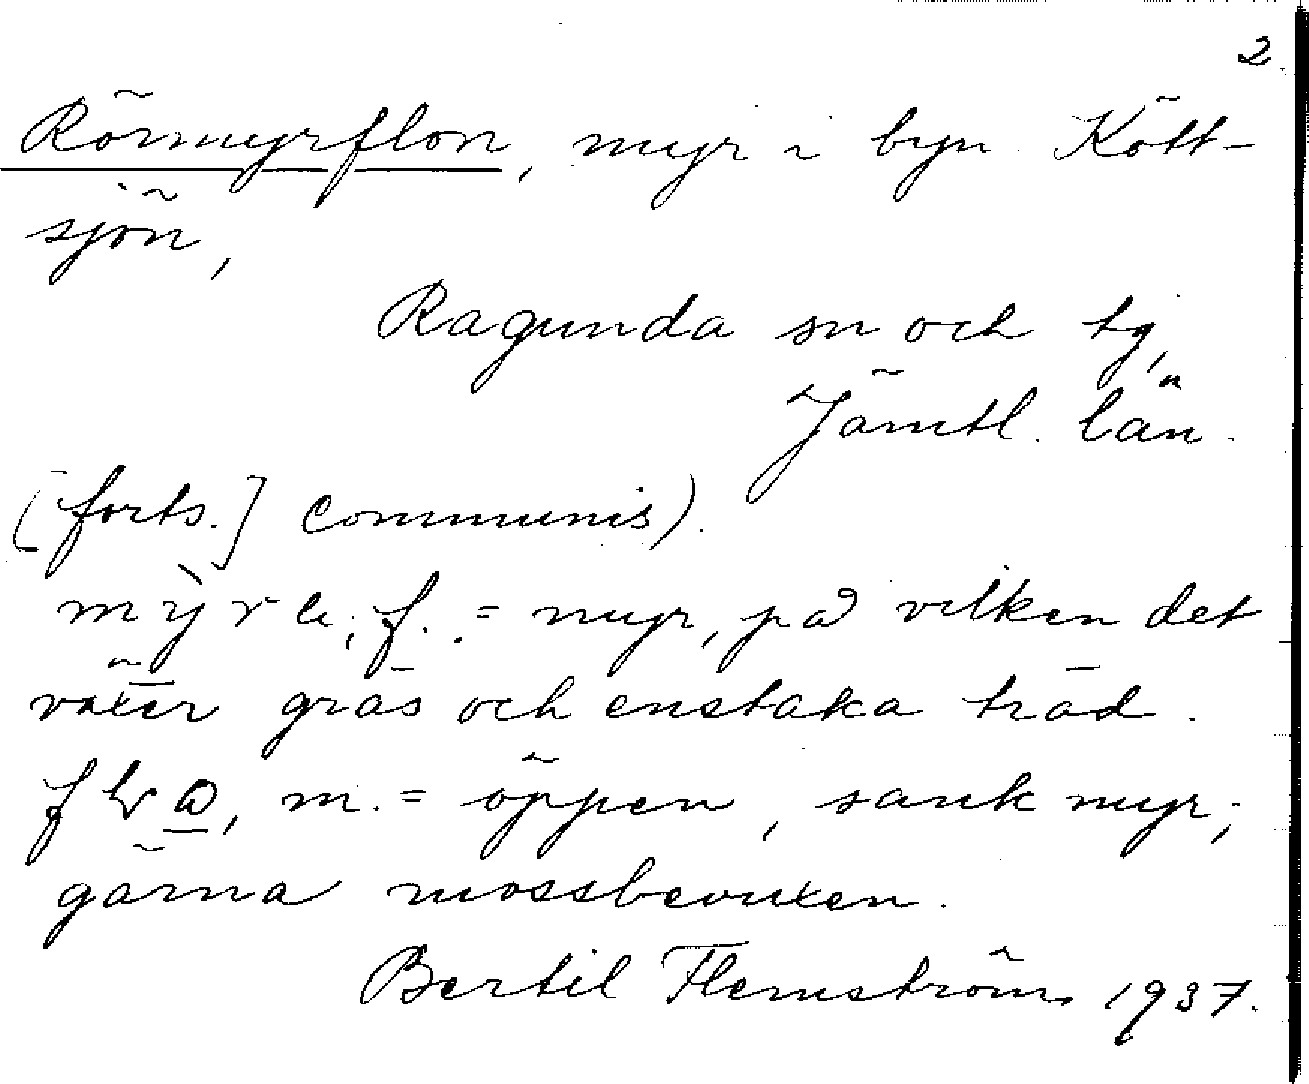 2
Rörmyrflon, myr i byn Kött-
sjön,
Ragunda sn och tg,
Jämtl. län.
[forts.] communis).
mỳr a, f. = myr, på vilken det
växer gräs och enstaka träd.
m. = öppen, sank myr;
gärna mossbevuxen.
Bertil Flemström 1937.